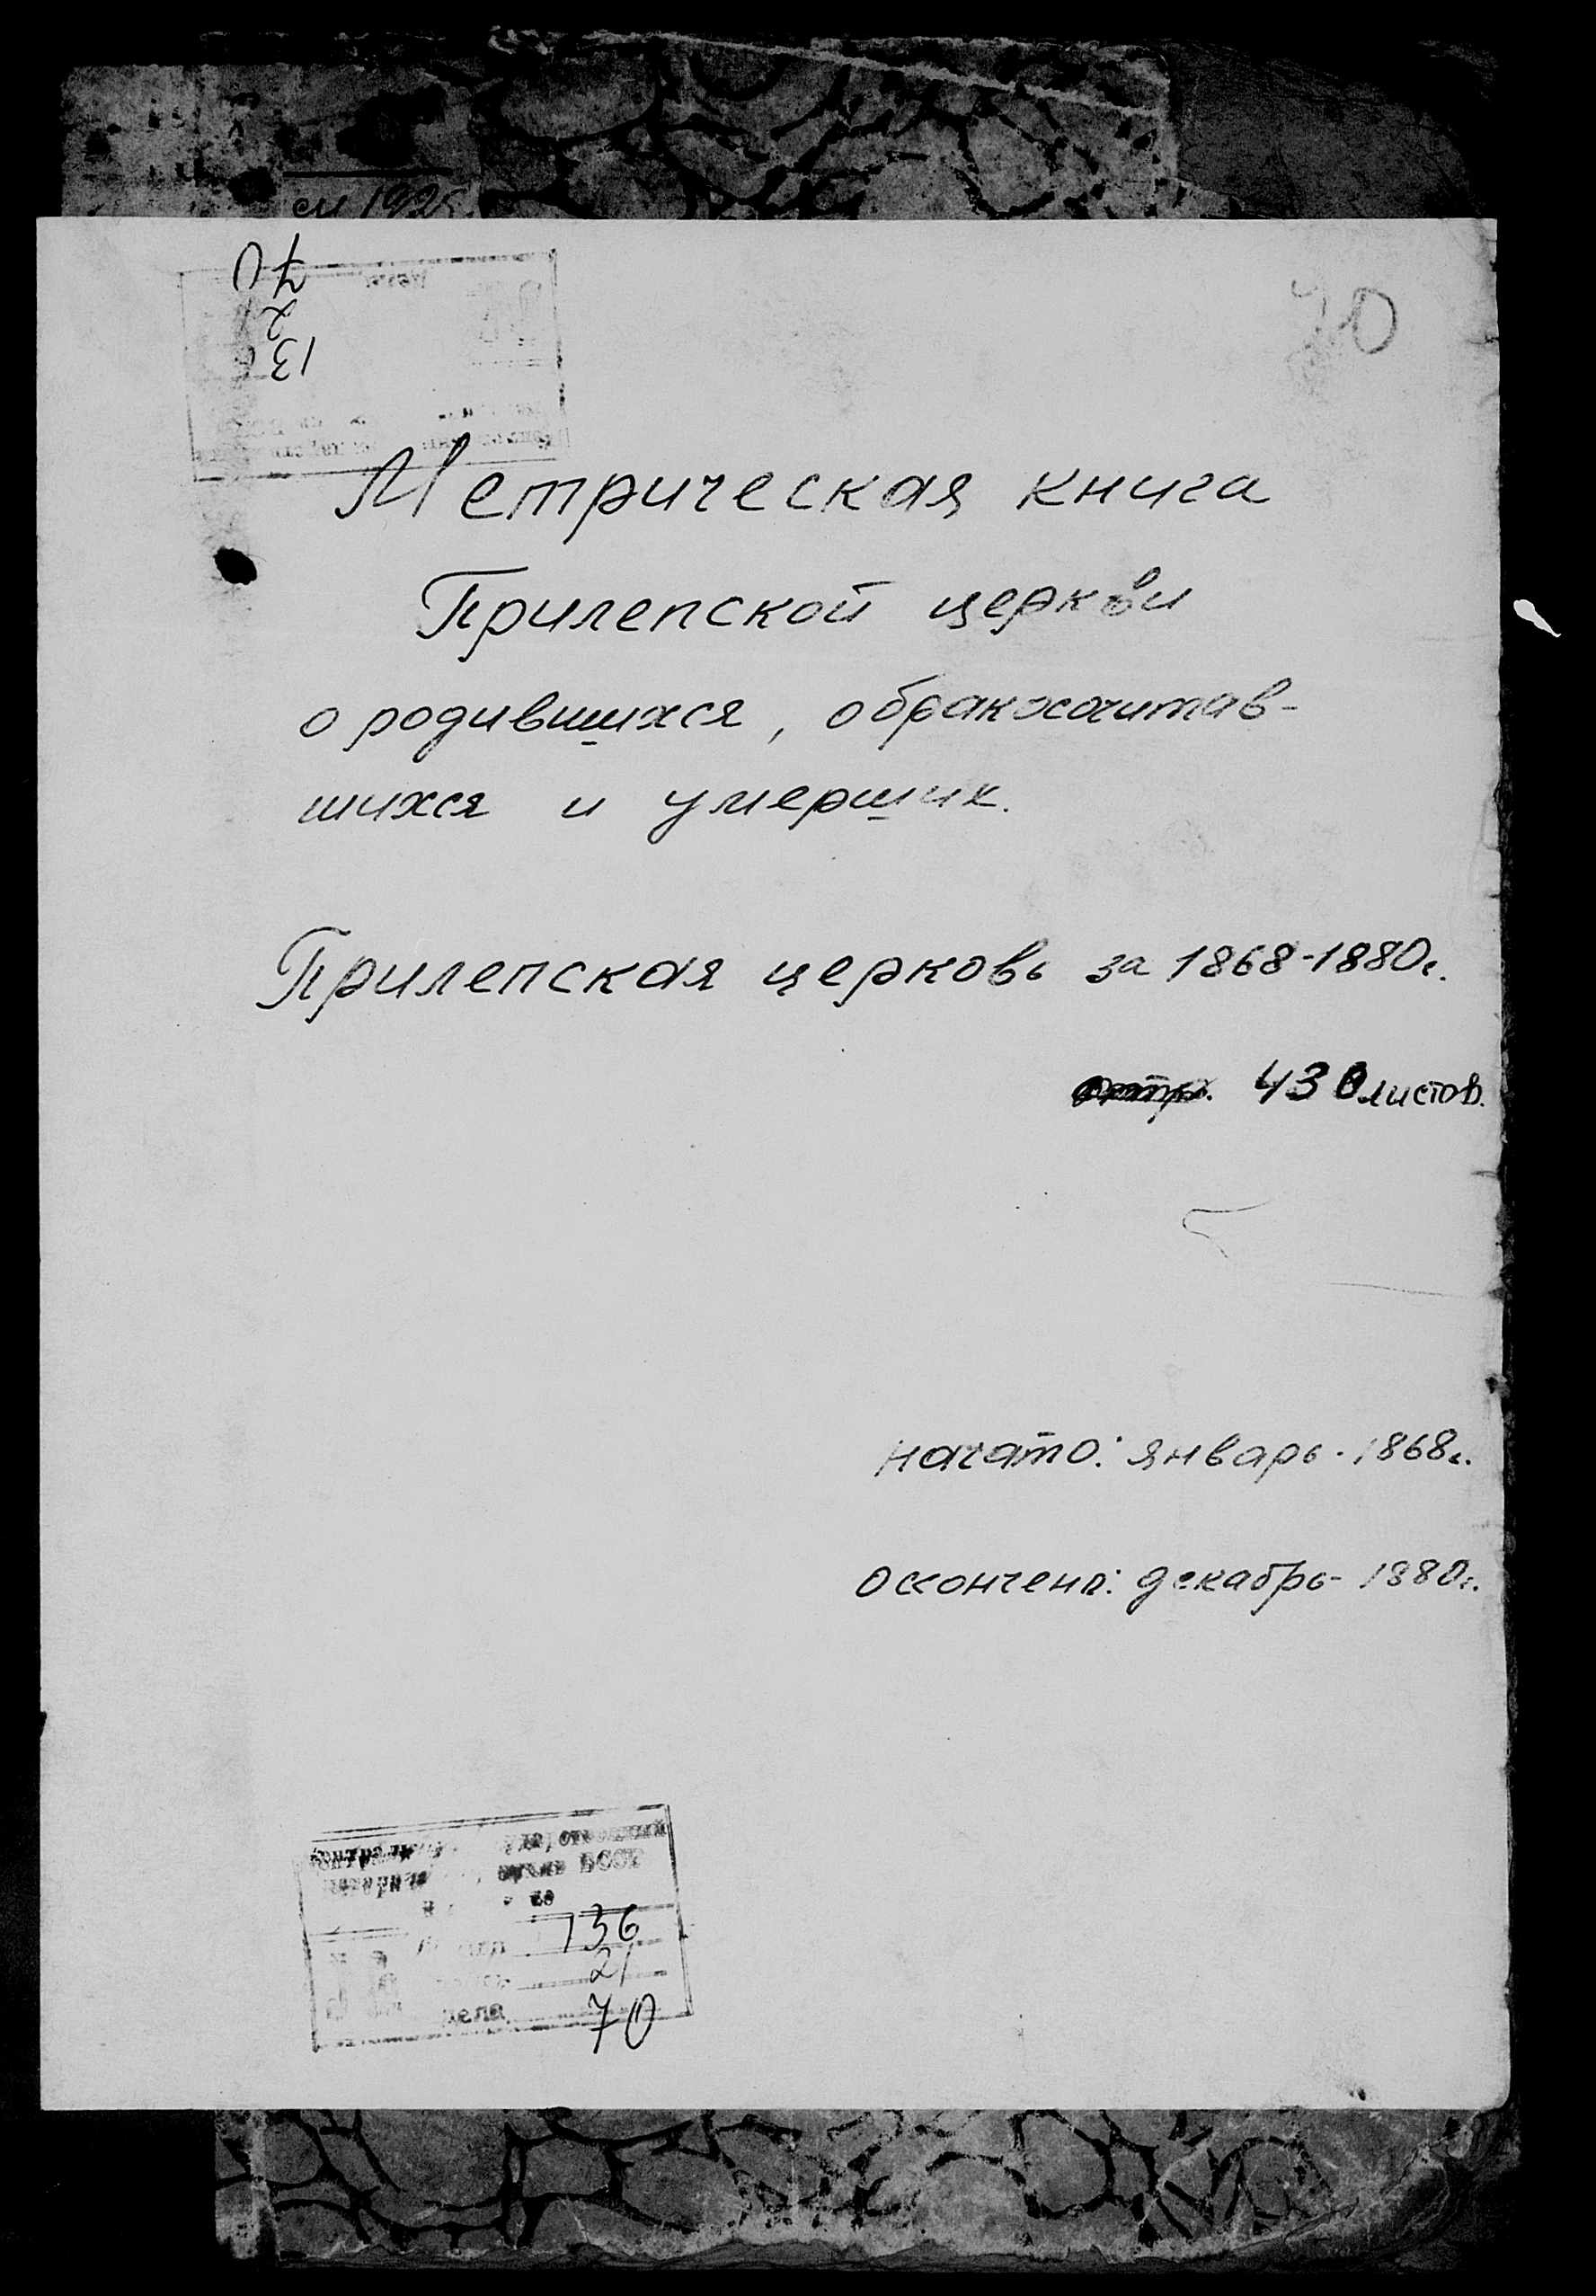 70
Метрическая книга
Прилепской церкви
о родившихся, обракосочитав-
шихся и умерших.
Прилепская церковь за 1868-1880г.
430 листов.
начато: январь - 1868г.
окончено: декабрь - 1880г.
архив БССР
136
21
70